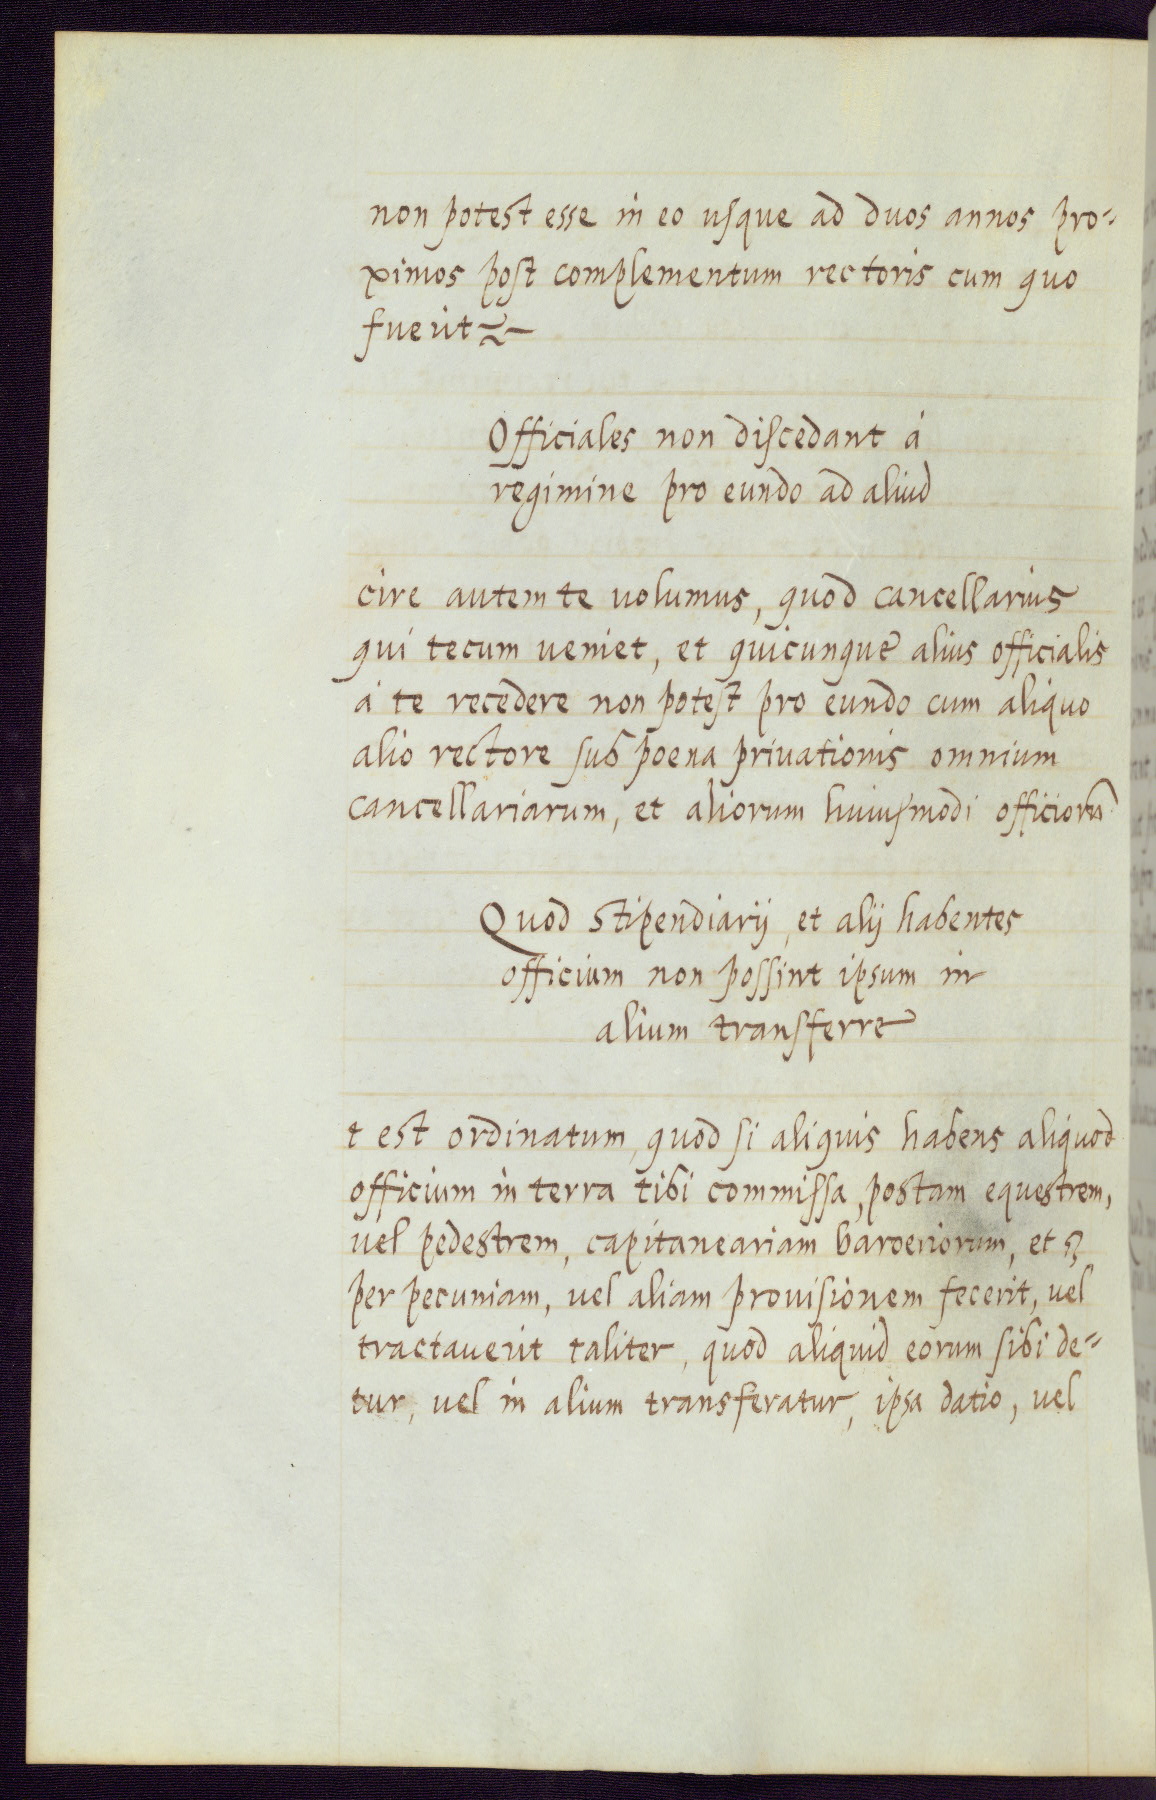 non potest esse in eo usque ad duos annos pro=
ximos post complementum rectoris cum quo
fuerit
Officiales non discedant à
regimine pro eundo ad aliud
cire autem te uolumus, quod cancellarius
qui tecum ueniet, et quicunque alius officialis
à te recedere non potest pro eundo cum aliquo
alio rectore sub poena priuationis omnium
cancellariarum, et aliorum huiusmodi officiorũ
Quod stipendiarij, et alij habentes
officium non possint ipsum in
alium transferre
t est ordinatum, quod si aliquis habens aliquod
officium in terra tibi commissa, postam equestrem,
uel pedestrem, capitaneariam baroeriorum, et
per pecuniam, uel aliam prouisionem fecerit, uel
tractauerit taliter, quod aliquid eorum sibi de=
tur, uel in alium transferatur, ipsa datio, uel